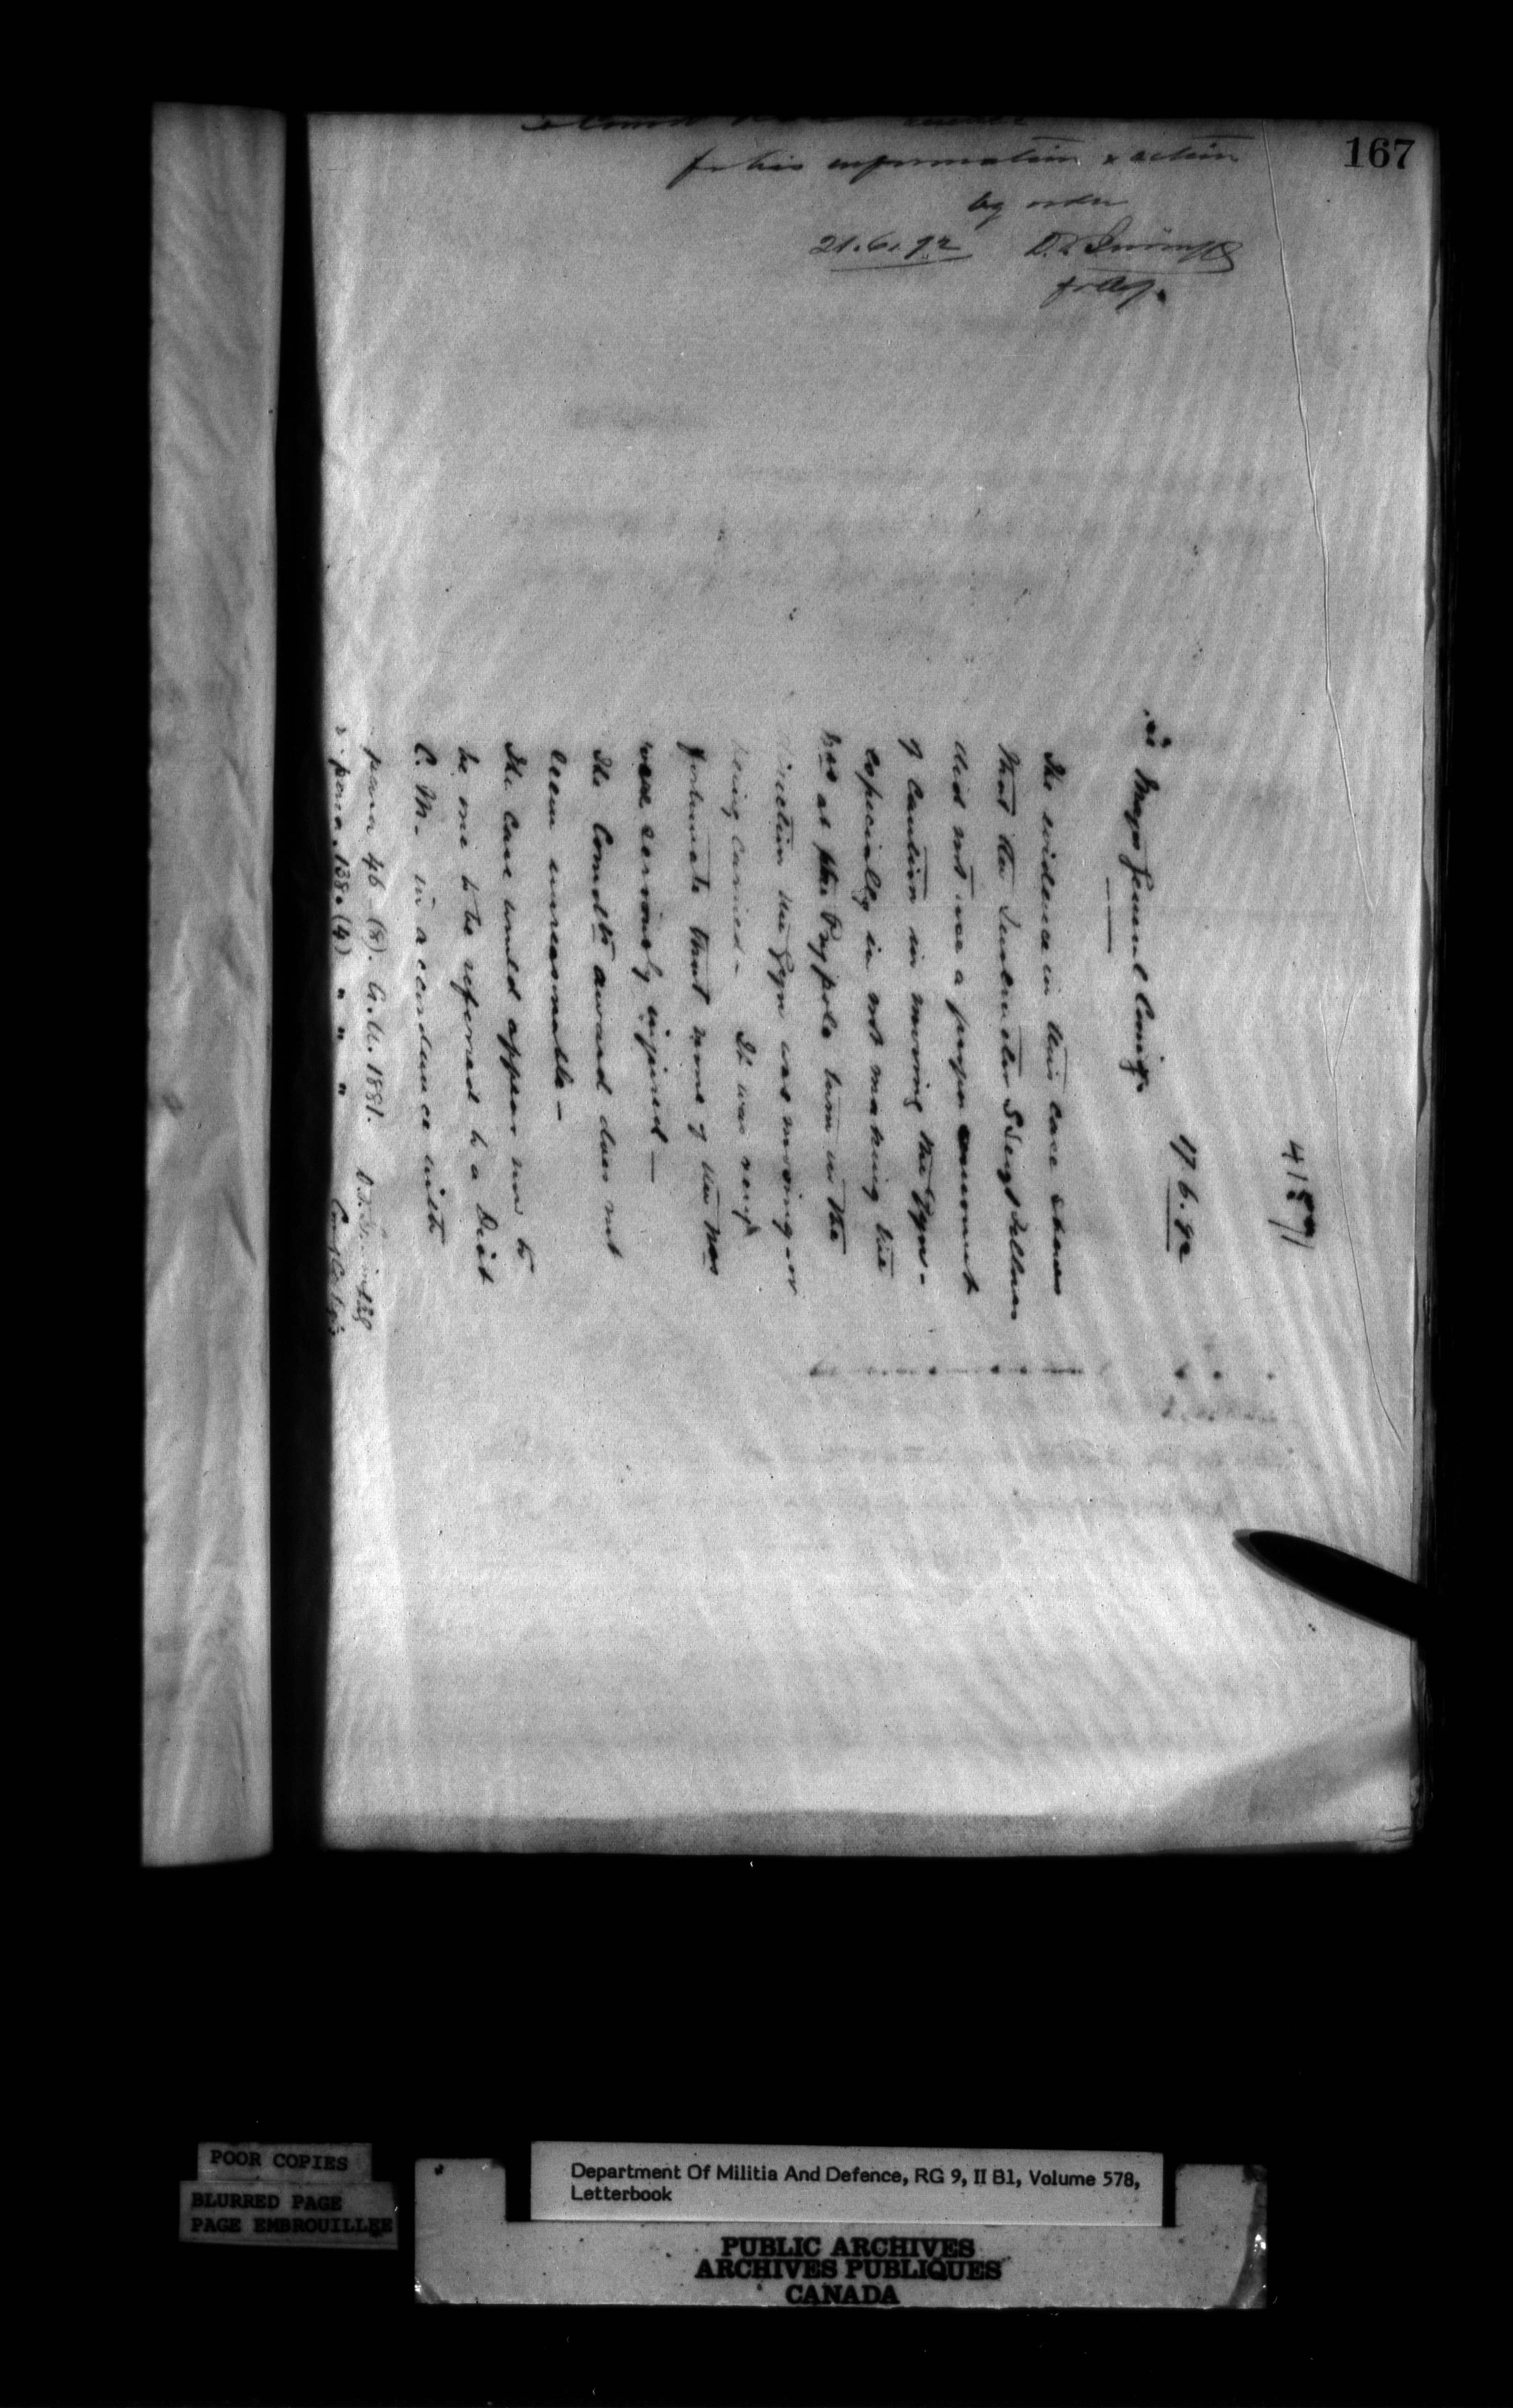 167
for his information & action
by order
21.6.92
for AG.
4159/1
17.6.92
Major General Comdg.
The evidence in this case shews
that the Sergt
did not use a proper amount
of caution in moving the Gyn -
especially in not making the
Nos at the Prypole turn in the
direction the Gyn was moving - or
being carried - It was very
fortunate that none of the Nos
were seriously injured -
The Comdt's award does not
seem unreasonable -
The case would appear now to
be one to be referred to a Dist
C. M. in accordance with
para 46 (8). A.A. 1881.
& para 138. (4) " " "
POOR COPIES
BLURRED PAGE
PAGE EMBROUILLEE
Department Of Militia And Defence, RG 9, II B1, Volume 578,
Letterbook
PUBLIC ARCHIVES
ARCHIVES PUBLIQUES
CANADA